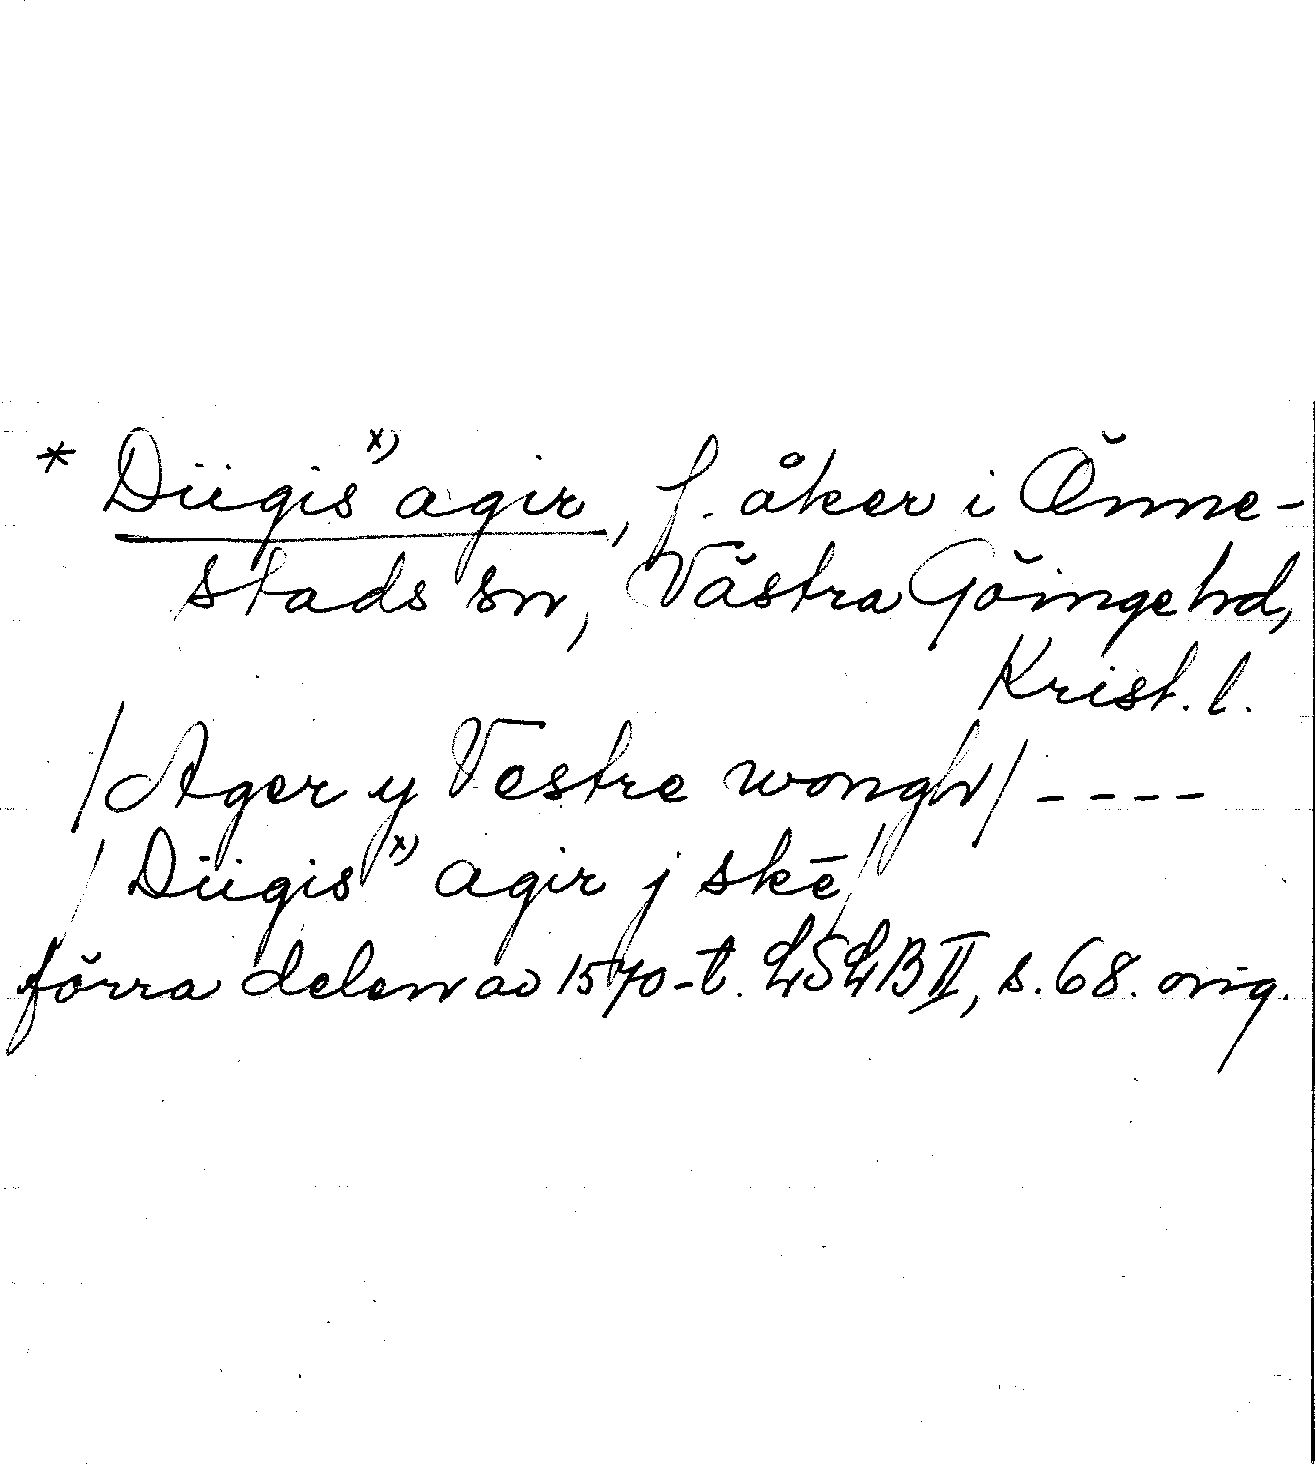 * Diigis x) agir, f. åker i Önne-
stads sn, Västra Göinge hd,
Krist. l.
/Ager y Vestre wongh/ ----
/Diigis x) agir j skē/
förra delen av 1570-t. LSLB II, s. 68. orig.